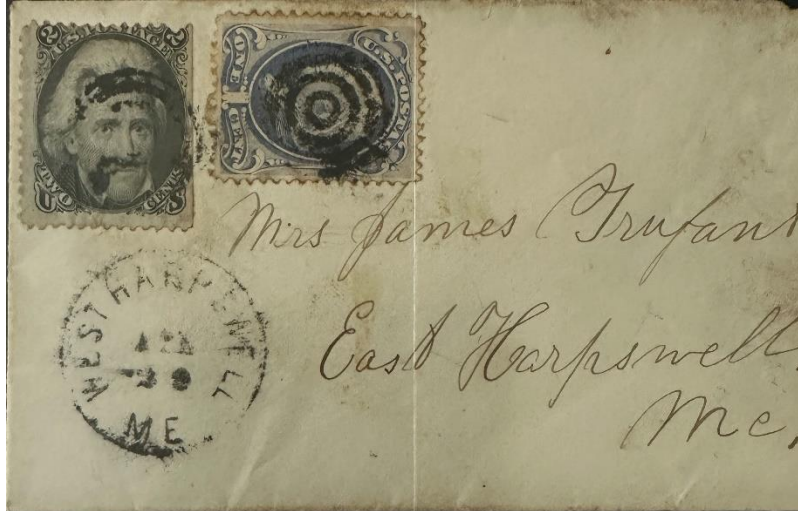 U.S. POSTAGE
TWO CENTS
U S
U.S. POSTAGE
ONE CENT
Mrs James Trufant
East Harpswell.
Me,
WEST HARPSWELL
ME